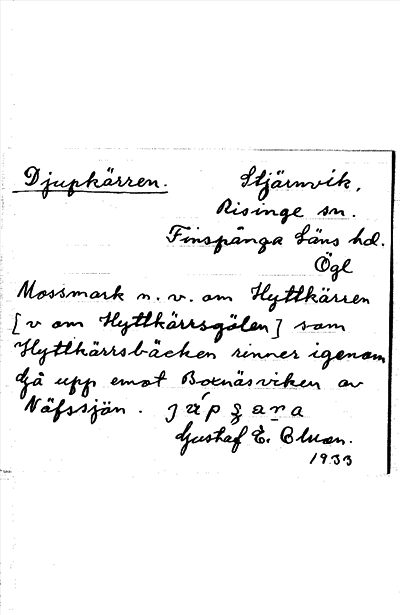 Djupkärren. Stjärnvik,
Risinge sn.
Finspånga Läns hd.
Ögl
Mossmark n. v. om Hyttkärren
[v om Hyttkärrsgölen] som
Hyttkärrsbäcken rinner igenom
upp emot Boxnäsviken av
Näfssjön.
Gustaf E. Bluon.
1933